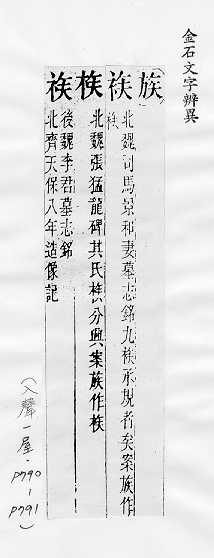 金石文字辨異
（族）
袟 北魏司馬景和妻墓志銘九袟承規者矣案族作
袟
㭍 北魏張猛龍碑其氏㭍分興案族作㭍
袟 後魏李君墓志銘
北齊天保八年造像記
(入聲一屋．P790－P791)